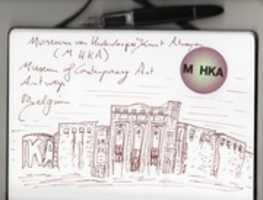 Museum van Hedendaagse Kunst Antwerpen
(M HKA)
M HKA
Museum of Contemporary Art
Antwerp
Belgium
KA